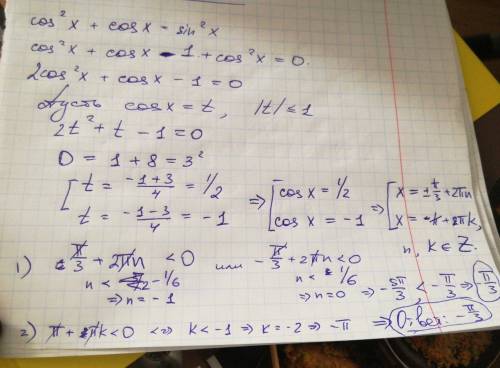 cos²x + cosx - sin²x
cos²x + cosx - 1 + cos²x = 0.
2cos²x + cosx - 1 = 0
Пусть cosx = t, |t| ≤ 1
2t² + t - 1 = 0
D = 1 + 8 = 3²
[ t = (-1+3)/4 = 1/2
t = (-1-3)/4 = -1
⇒ [ cosx = 1/2
cosx = -1
⇒ [ x = ±π/3 + 2πn
x = π + 2πk,
n, k ∈ Z.
1) π/3 + 2πn < 0 или -π/3 + 2πn < 0
n < -1/6 n < 1/6
⇒ n = -1 ⇒ n = 0 ⇒ -5π/3 < -π/3 ⇒ -π/3
2) π + 2πk < 0 <=> k < -1 ⇒ k = -2 ⇒ -π ⇒ Ответ: -π/3